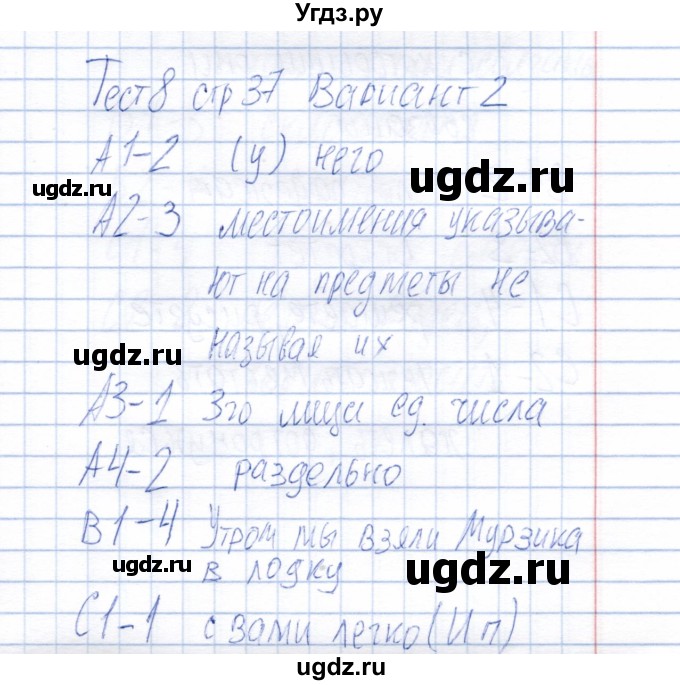 Угдз.ру
Тест 8 стр 37 Вариант 2
А1-2 (у) него
ugdz.ru
ugdz.ru
А2-3 местоимения указыва-
ют на предметы не
называя их
ugdz.ru
А3-1 3го лица ед. числа
ugdz.ru
А4-2 раздельно
ugdz.ru
В1-4 Утром мы взяли Мурзика
в лодку
ugdz.ru
ugdz.ru
С1-1 с вами легко (И п)
ugdz.ru